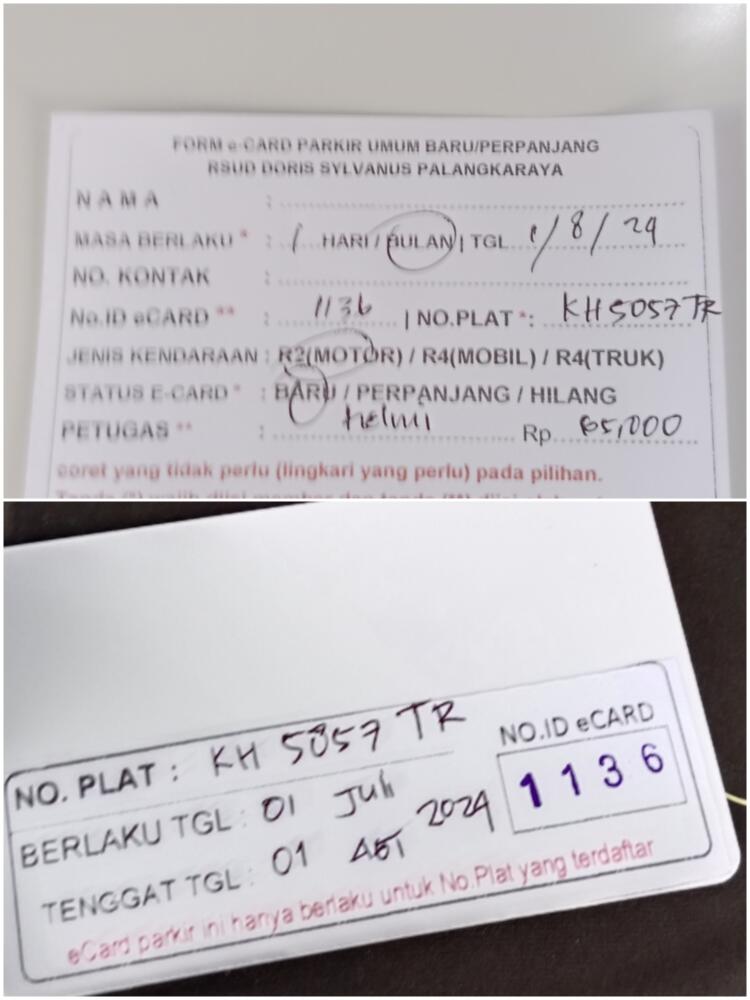 FORM e-CARD PARKIR UMUM BARU/PERPANJANG
RSUD DORIS SYLVANUS PALANGKARAYA
NAMA :
MASA BERLAKU * : 1 HARI / BULAN | TGL 1/8/24
NO. KONTAK :
No.ID eCARD ** : 1136 | NO.PLAT *: KH 5057 TR
JENIS KENDARAAN : R2(MOTOR) / R4(MOBIL) / R4(TRUK)
STATUS E-CARD * : BARU / PERPANJANG / HILANG
PETUGAS ** : helmi Rp. 65,000
coret yang tidak perlu (lingkari yang perlu) pada pilihan.
NO. PLAT : KH 5057 TR
BERLAKU TGL : 01 Juli
TENGGAT TGL : 01 AGT 2024
NO.ID eCARD
1136
eCard parkir ini hanya berlaku untuk No.Plat yang terdaftar